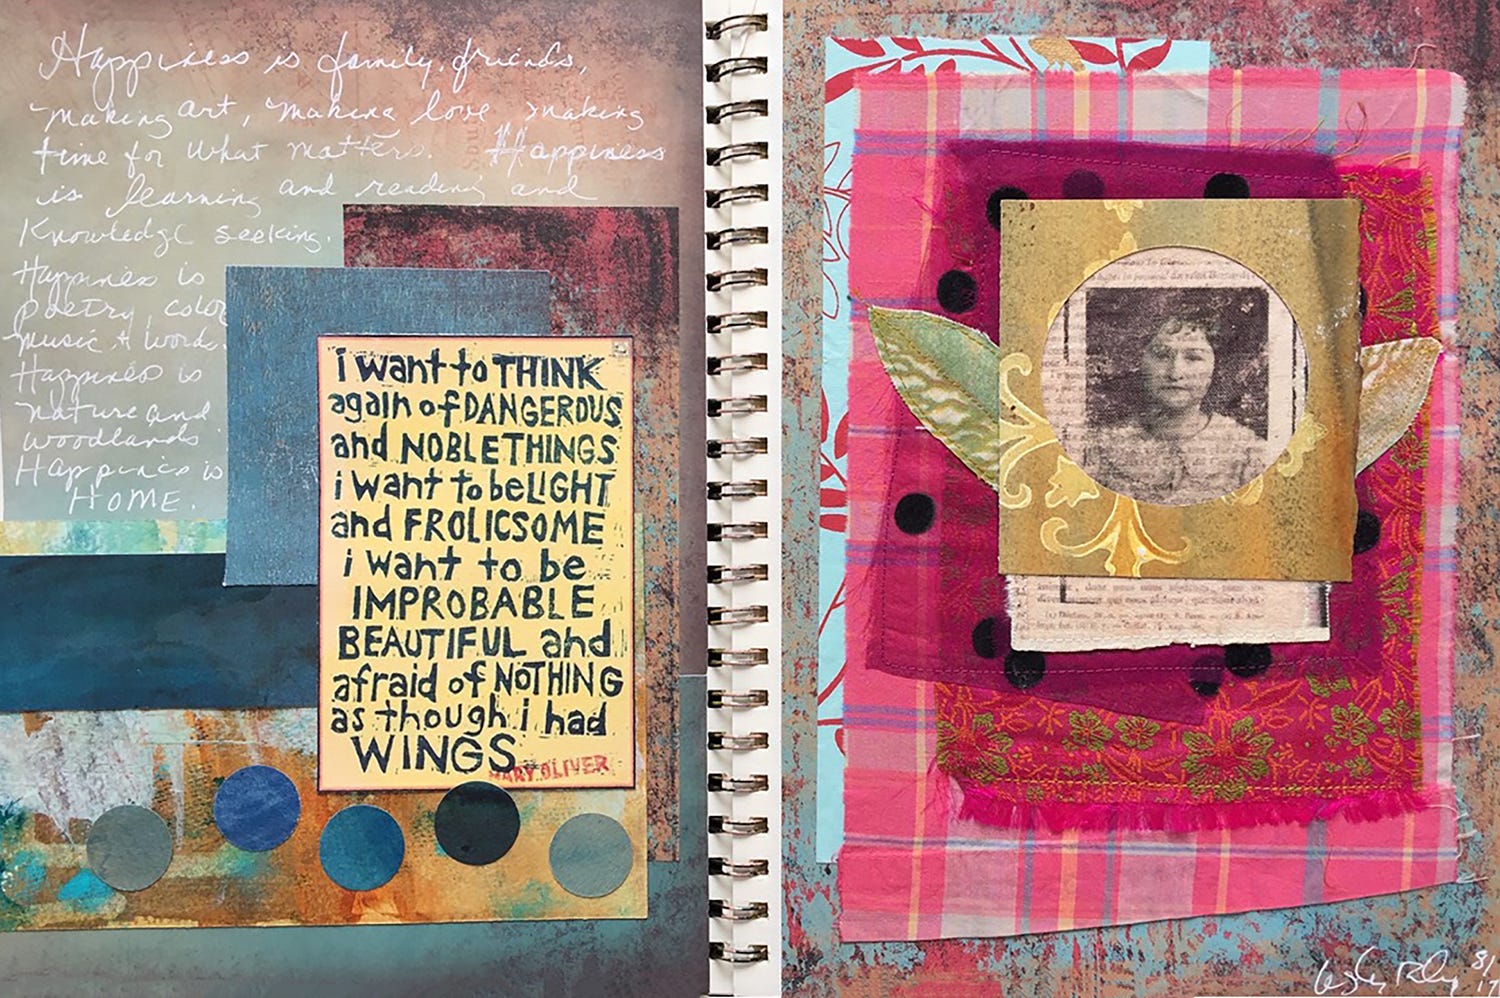 Happiness is family, friends,
making art, making love, making
time for what matters. Happiness
is learning and reading and
Knowledge seeking.
Happiness is
poetry, color
music & words.
Happiness is
nature and
woodlands.
Happiness is
HOME.
i want to THINK
again of DANGEROUS
and NOBLE THINGS.
i want to be LIGHT
and FROLICSOME
i want to be
IMPROBABLE
BEAUTIFUL and
afraid of NOTHING
as though i had
WINGS.
MARY OLIVER
8/
17